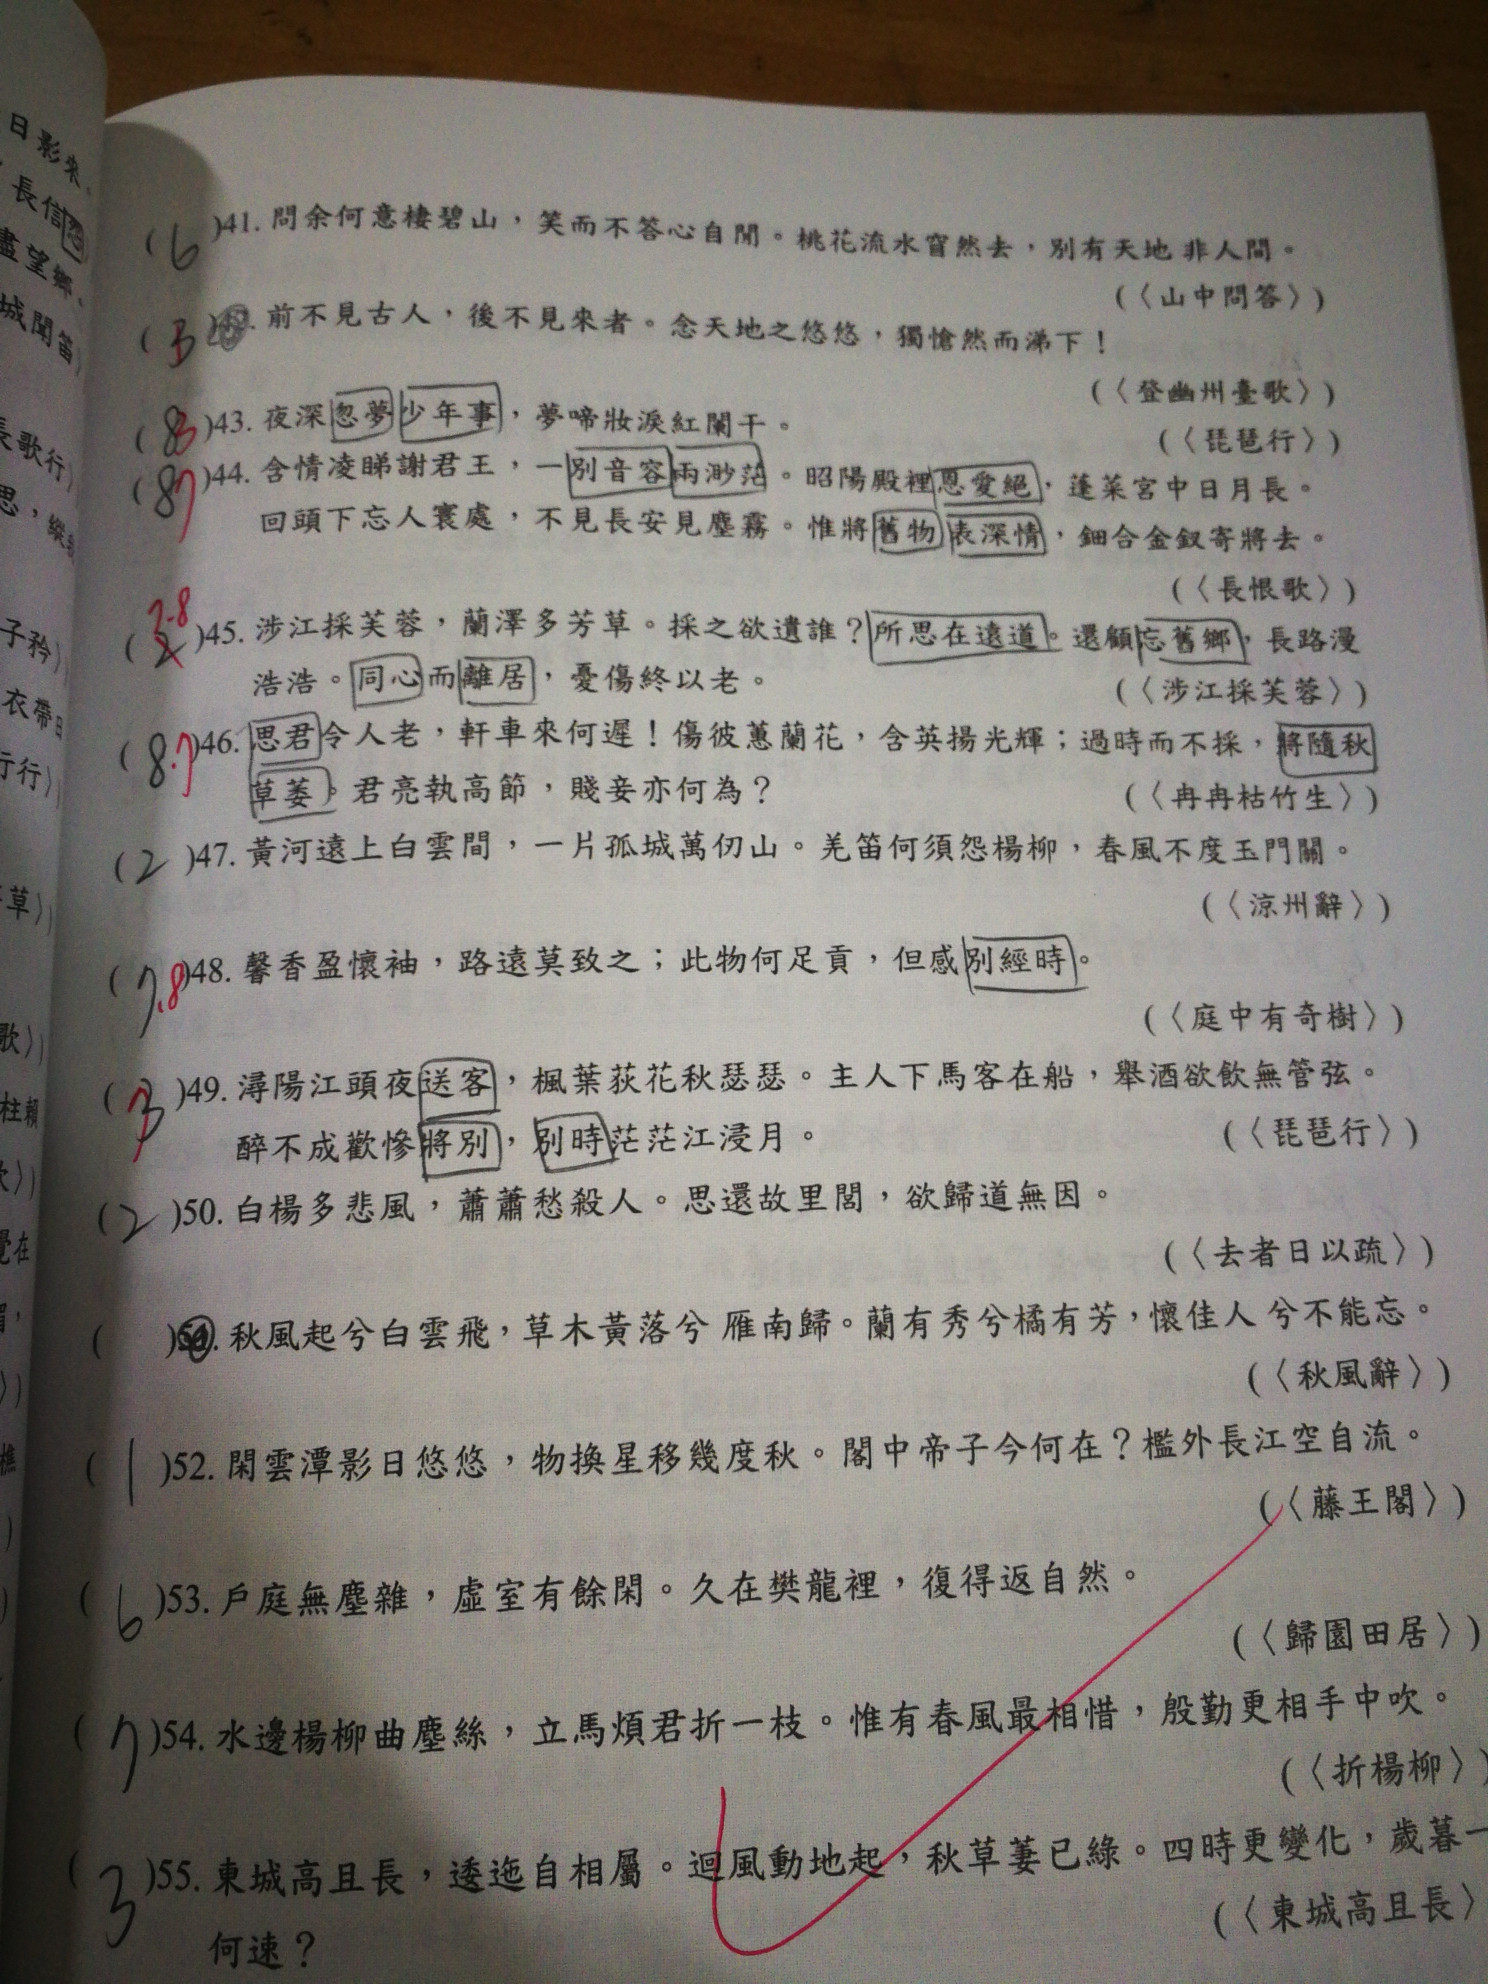 日影來。
長信怨
盡望鄉。
城聞笛
長歌行〉
思，縱
子衿〉
衣帶日
行行〉
草〉)
歌〉)
(6)41. 問余何意棲碧山，笑而不答心自閒。桃花流水窅然去，別有天地非人間。
(〈山中問答〉)
(3) 前不見古人，後不見來者。念天地之悠悠，獨愴然而涕下！
(〈登幽州臺歌〉)
(8 3)43. 夜深忽夢少年事，夢啼妝淚紅闌干。
(〈琵琶行〉)
(8 7)44. 含情凌睇謝君王，一別音容兩渺茫。昭陽殿裡恩愛絕，蓬萊宮中日月長。
回頭下忘人寰處，不見長安見塵霧。惟將舊物表深情，鈿合金釵寄將去。
(〈長恨歌〉)
7.8
(2)45. 涉江採芙蓉，蘭澤多芳草。採之欲遺誰？所思在遠道。還顧忘舊鄉，長路漫
浩浩。同心而離居，憂傷終以老。 (〈涉江採芙蓉〉)
(8.7)46. 思君令人老，軒車來何遲！傷彼蕙蘭花，含英揚光輝；過時而不採，將隨秋
草萎。君亮執高節，賤妾亦何為？ (〈冉冉枯竹生〉)
(2)47. 黃河遠上白雲間，一片孤城萬仞山。羌笛何須怨楊柳，春風不度玉門關。
(〈涼州辭〉)
(7.8)48. 馨香盈懷袖，路遠莫致之；此物何足貢，但感別經時。
(〈庭中有奇樹〉)
(3 7)49. 潯陽江頭夜送客，楓葉荻花秋瑟瑟。主人下馬客在船，舉酒欲飲無管弦。
醉不成歡慘將別，別時茫茫江浸月。 (〈琵琶行〉)
(2)50. 白楊多悲風，蕭蕭愁殺人。思還故里閭，欲歸道無因。
(〈去者日以疏〉)
( )51. 秋風起兮白雲飛，草木黃落兮雁南歸。蘭有秀兮橘有芳，懷佳人兮不能忘。
(〈秋風辭〉)
(1)52. 閑雲潭影日悠悠，物換星移幾度秋。閣中帝子今何在？檻外長江空自流。
(〈藤王閣〉)
(6)53. 戶庭無塵雜，虛室有餘閑。久在樊龍裡，復得返自然。
(〈歸園田居〉)
(7)54. 水邊楊柳曲塵絲，立馬煩君折一枝。惟有春風最相惜，殷勤更相手中吹。
(〈折楊柳〉)
(3)55. 東城高且長，逶迤自相屬。迴風動地起，秋草萋已綠。四時更變化，歲暮一
何速？ (〈東城高且長〉